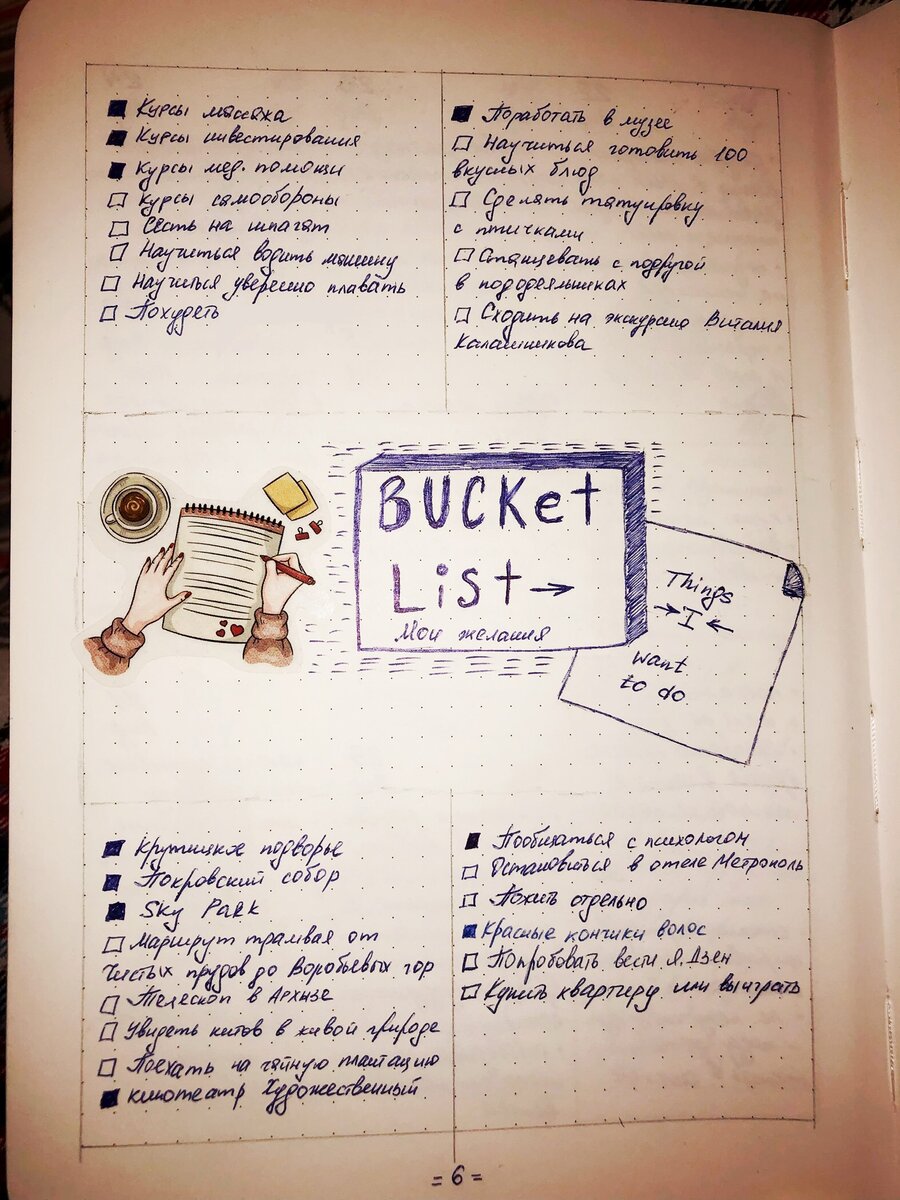 Курсы массажа
Курсы инвестирования
Курсы мед. помощи
Курсы самообороны
Сесть на шпагат
Научиться водить машину
Научиться уверенно плавать
Похудеть
Поработать в музее
Научиться готовить 100
вкусных блюд
Сделать татуировку
с птичками
Станцевать с подругой
в пододеяльниках
Сходить на экскурсию Виталия
Калашникова
BUCKet
List →
Мои желания
Things
→ I ←
want
to do
Крутицкое подворье
Покровский собор
Sky Park
Маршрут трамвая от
Чистых прудов до Воробьевых гор
Телескоп в Архызе
Увидеть китов в живой природе
Поехать на чайную плантацию
кинотеатр Художественный
Пообщаться с психологом
Остановиться в отеле Метрополь
Пожить отдельно
Красные кончики волос
Попробовать вести Я.Дзен
Купить квартиру или выиграть
= 6 =